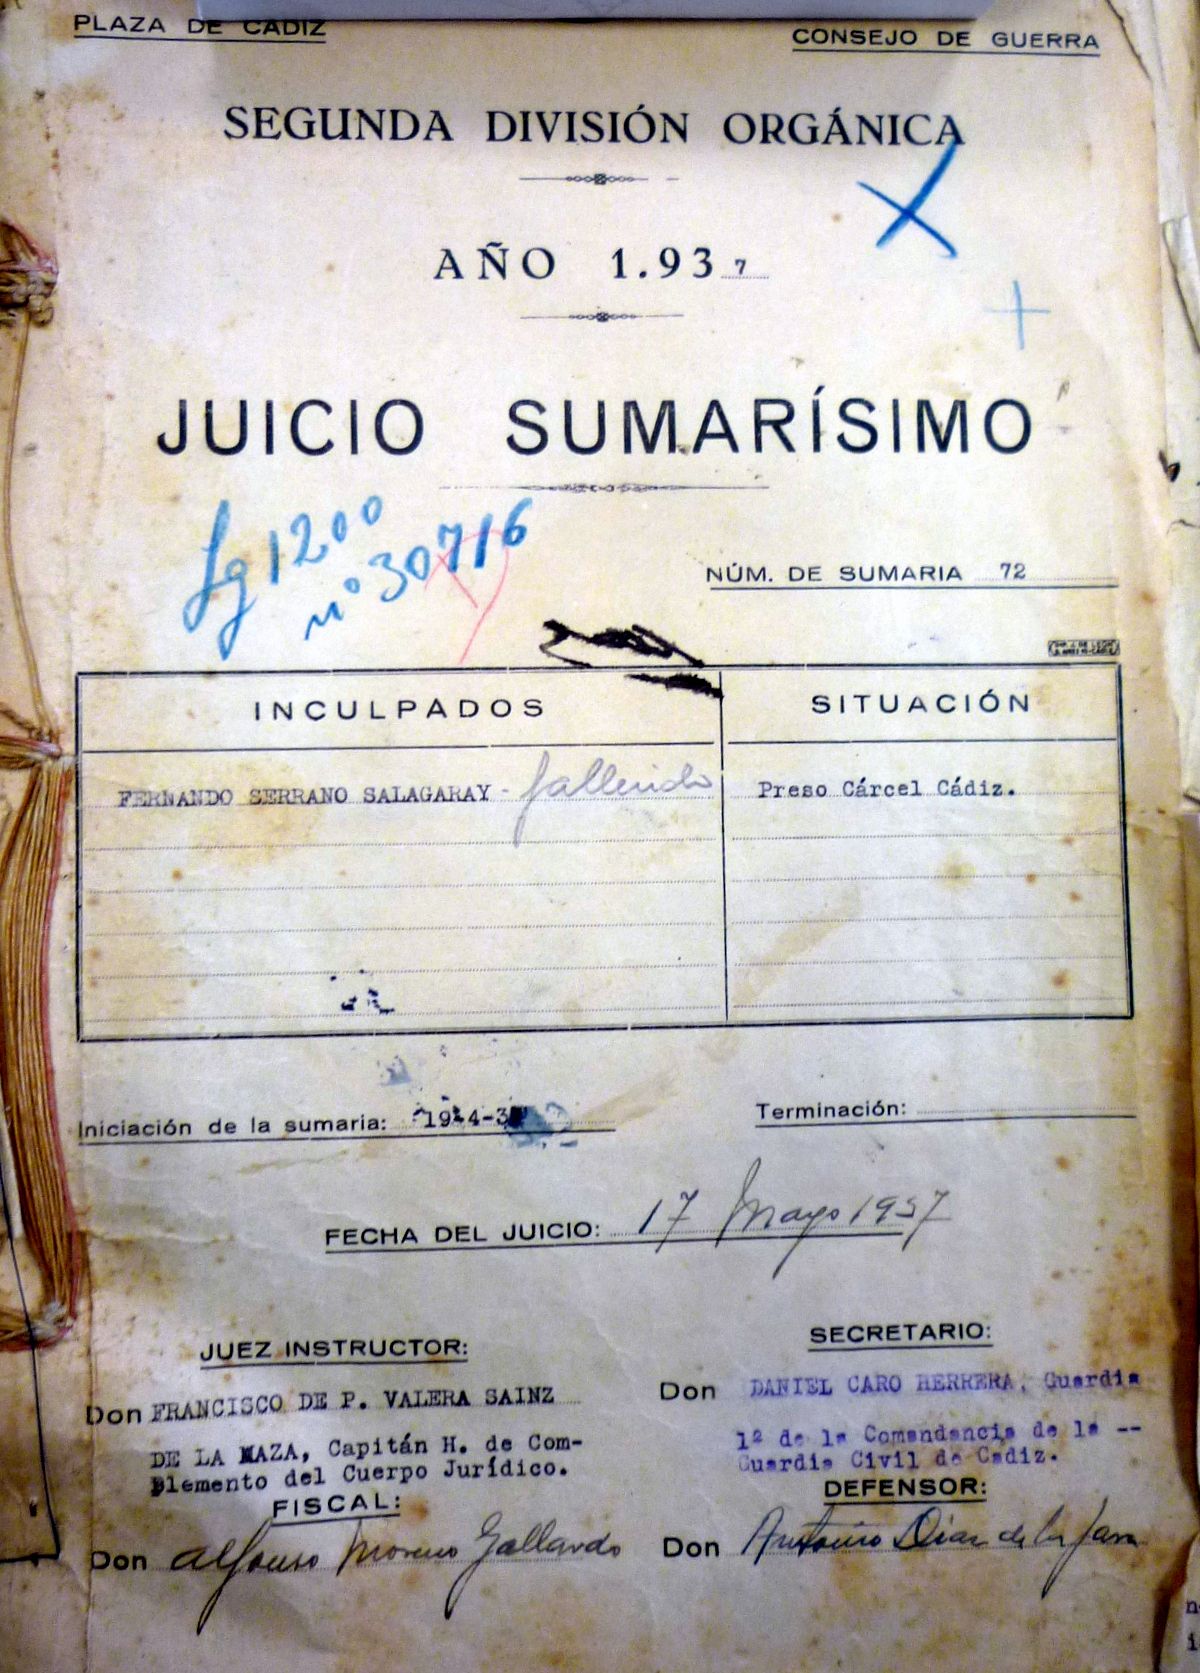 PLAZA DE CADIZ
CONSEJO DE GUERRA
SEGUNDA DIVISIÓN ORGÁNICA
AÑO 1.937
JUICIO SUMARÍSIMO
Lg 1200
nº 30716
NÚM. DE SUMARIA 72
INCULPADOS
SITUACIÓN
FERNANDO SERRANO SALAGARAY - fallecido
Preso Cárcel Cádiz.
Iniciación de la sumaria: 19-4-3
Terminación:
FECHA DEL JUICIO: 17 Mayo 1937
JUEZ INSTRUCTOR:
SECRETARIO:
Don FRANCISCO DE P. VALERA SAINZ
DE LA MAZA, Capitán H. de Com-
plemento del Cuerpo Jurídico.
Don DANIEL CARO HERRERA, Guardia
1º de la Comandancia de la --
Guardia Civil de Cadiz.
FISCAL:
DEFENSOR:
Don Alfonso Moreno Gallardo
Don Antonio Díaz de la Jara